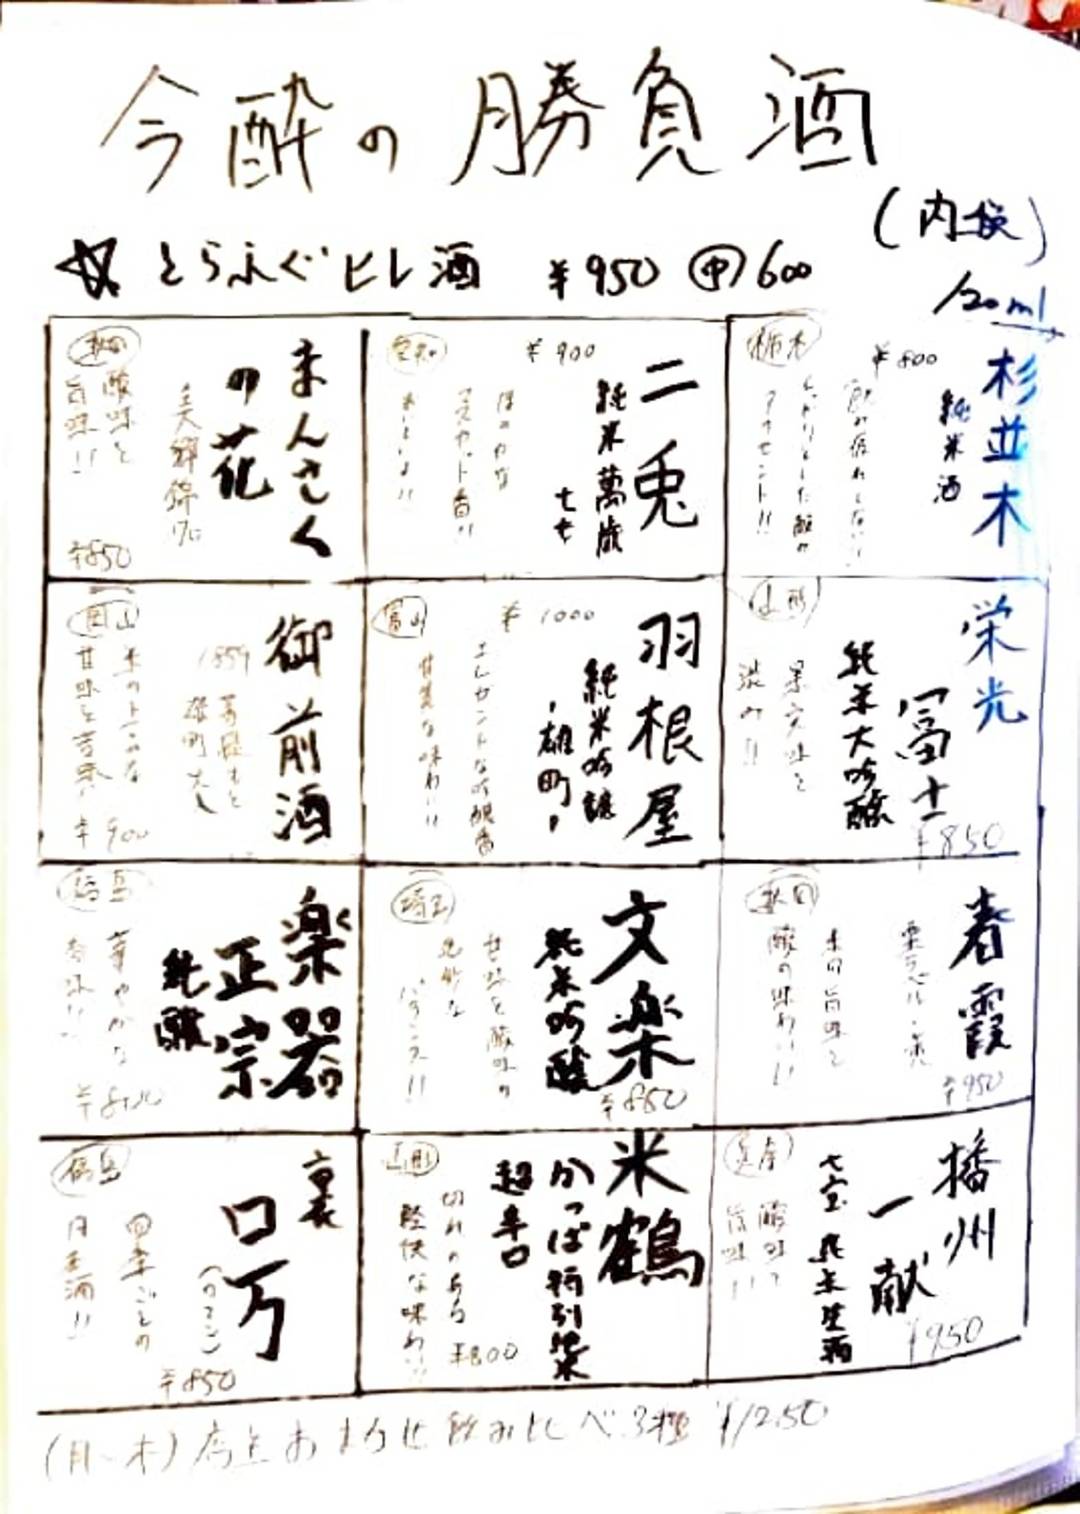 今酔の勝負酒
(内税)
とらふぐヒレ酒 ¥950 ㊥600
120ml
栃木
¥800
杉並木
純米酒
飲み疲れしない!
しっかりとした酸が
アクセント!!
愛知
¥900
二兎
純米萬歳
七七
ほのかな
マスカット香!!
秋田
まんさく
の花
美郷錦70
酸味と
旨味!!
¥850
山形
栄光
冨士
純米大吟醸
果実味と
渋み!!
¥850
富山
¥1000
羽根屋
純米吟醸
雄町
エレガントな吟醸香
甘美な味わい!!
岡山
御前酒
1859
菩提もと
雄町
米のジューシーな
¥900
秋田
春霞
栗ラベル・赤
米の旨味と
酸の味わい!!
¥950
埼玉
文楽
純米吟醸
甘味と酸味の
絶妙な
バランス!!
¥850
福島
楽器
正宗
純醸
華やかな
播州
一献
七宝 純米生酒
酸味と
旨味!!
¥950
山形
米鶴
かっぱ特別純米
超辛口
切れのある
軽快な味わい!!
¥800
福島
裏
ロ万
(ろまん)
四季ごとの
月in酒!!
¥850
(月~木)店主おまかせ飲み比べ3種 ¥1250